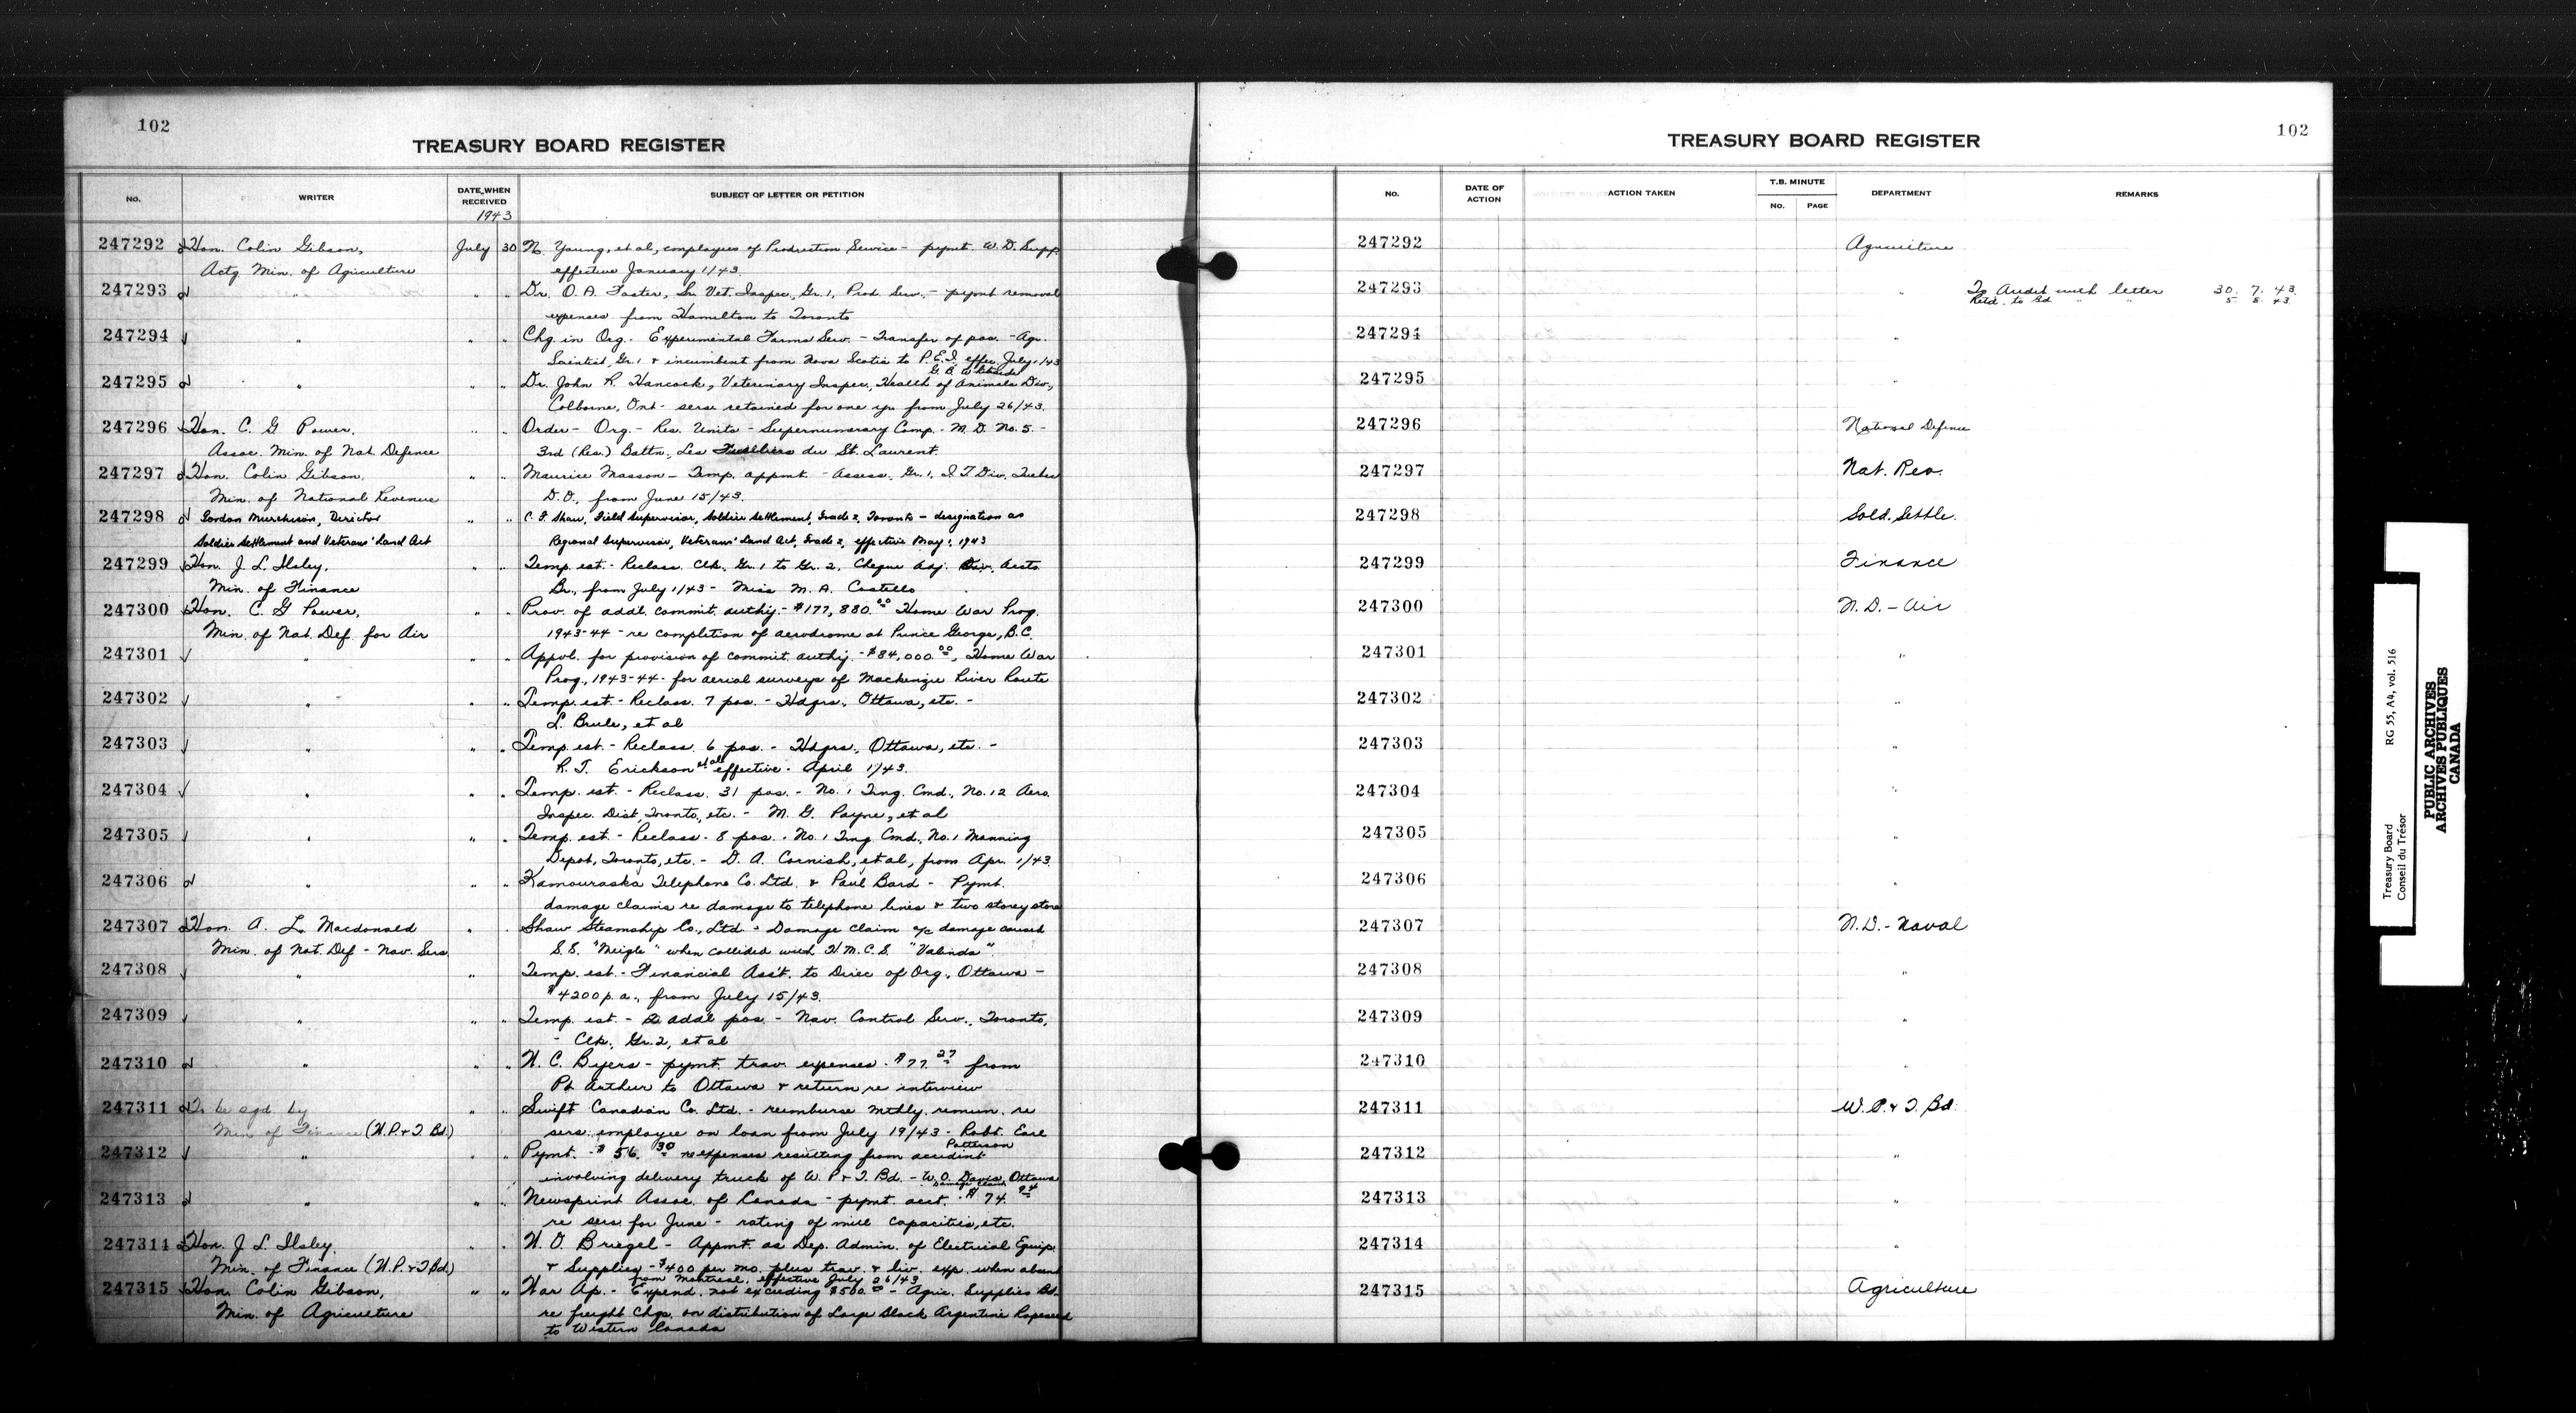 102
TREASURY BOARD REGISTER
NO. WRITER DATE WHEN RECEIVED SUBJECT OF LETTER OR PETITION
1943
247292 Hon. Colin Gibson, July 30 N. Young, et al, employees of Production Service - pymt. W.D. Supp.
Actg. Min. of Agriculture effective January 1/43.
247293 " " " Dr. O. A. Foster, Sr. Vet. Inspec., Gr. 1, Prod. Serv. - pymt removal
expenses from Hamilton to Toronto
247294 " " " Chg. in Org. - Experimental Farms Serv. - Transfer of pos. - Agr.
Scientist, Gr. 1 & incumbent from Nova Scotia to P.E.I. effec. July 1/43
G. B.
247295 " " " Dr. John R. Hancock, Veterinary Inspec., Health of Animals Div.,
Colborne, Ont - servs retained for one yr. from July 26/43.
247296 Hon. C. G. Power, " " Order - Org. - Res. Units - Supernumerary Comp. - M.D. No. 5. -
Assoc. Min. of Nat. Defence 3rd (Res.) Battn., Les Fusiliers du St. Laurent.
247297 Hon. Colin Gibson, " " Maurice Masson - Temp. appmt. - Assess. Gr. 1, I T Div. Quebec
Min. of National Revenue D.O., from June 15/43.
247298 Gordon Murchison, Director " " C. F. Shaw, Field Supervisor, Soldier Settlement, Grade 2, Toronto - designation as
Soldier Settlement and Veterans' Land Act Regional Supervisor, Veterans' Land Act, Grade 2, effective May 1, 1943
247299 Hon. J. L. Ilsley, " " Temp. est. - Reclass. Clk. Gr. 1 to Gr. 2, Cheque Adj. Div. Accts
Min. of Finance Br., from July 1/43 - Miss M. A. Costello
247300 Hon. C. G Power, " " Prov. of addl. commit. authy. - $177,880.00 Home War Prog.
Min. of Nat. Def. for Air 1943-44 - re completion of aerodrome at Prince George, B.C.
247301 " " " Appvl. for provision of commit. authy. - $84,000.00, Home War
Prog., 1943-44 - for aerial surveys of Mackenzie River Route
247302 " " " Temp. est. - Reclass. 7 pos. - Hdqrs., Ottawa, etc. -
L. Brule, et al
247303 " " " Temp. est. - Reclass. 6 pos. - Hdqrs., Ottawa, etc. -
R. T. Erickson et al effective - April 1/43.
247304 " " " Temp. est. - Reclass. 31 pos. - No. 1 Trng. Cmd., No. 12 Aero.
Inspec. Dist, Toronto, etc. - M. G. Payne, et al
247305 " " " Temp. est. - Reclass. 8 pos. - No. 1 Trng Cmd., No. 1 Manning
Depot, Toronto, etc. - D. A. Cornish, et al, from Apr. 1/43.
247306 " " " Kamouraska Telephone Co. Ltd. & Paul Bard - Pymt.
damage claims re damage to telephone lines & two storey store
247307 Hon. A. L. Macdonald " " Shaw Steamship Co., Ltd - Damage claim a/c damage caused
Min. of Nat. Def - Nav. Serv. S.S. "Neigle" when collided with H.M.C.S. "Valinda".
247308 " " Temp. est. - Financial Ass't. to Direc of Org., Ottawa -
$4200 p.a., from July 15/43.
247309 " " " Temp. est. - 2 addl pos. - Nav. Control Serv., Toronto,
- Clk., Gr. 2, et al
247310 " " " N. C. Byers - pymt. trav. expenses - $77.27 from
Pt. Arthur to Ottawa & return re interview
247311 To be sgd by " " Swift Canadian Co. Ltd. - reimburse mthly. remun. re
Min of Finance (W.P. & T. Bd.) servs. employee on loan from July 19/43 - Robt. Earl
Patterson
247312 " " " Pymt. - $56.30 re expenses resulting from accident
involving delivery truck of W. P & T. Bd. - W. O. Davis, Ottawa
Damage Claim
247313 " " " Newsprint Assoc. of Canada - pymt. acct. - $74.94
re servs for June - rating of mill capacities, etc.
247314 Hon. J. L. Ilsley, " " W. O. Briegel - Appmt. as Dep. Admin. of Electrical Equip.
Min. of Finance (W.P. & T Bd.) & Supplies - $400 per mo. plus trav. & liv. exp. when absent
from Montreal. effective July 26/43
247315 Hon. Colin Gibson, " " War Ap. - Expend. not exceeding $500.00 - Agric. Supplies Bd.
Min. of Agriculture re freight chgs. on distribution of Large Black Argentine Rapeseed
to Western Canada
102
TREASURY BOARD REGISTER
NO. DATE OF ACTION ACTION TAKEN T.B. MINUTE NO. PAGE DEPARTMENT REMARKS
247292 Agriculture
247293 " To Audit with letter 30. 7. 43.
Retd. to Bd " " 5 8 43
247294 "
247295 "
247296 National Defence
247297 Nat. Rev.
247298 Sold. Settle.
247299 Finance
247300 N.D. - Air
247301 "
247302 "
247303 "
247304 "
247305 "
247306 "
247307 N.D. - Naval
247308 "
247309 "
247310 "
247311 W.P. & T. Bd.
247312 "
247313 "
247314 "
247315 Agriculture
Treasury Board RG 55, A4, vol. 516
Conseil du Trésor
PUBLIC ARCHIVES
ARCHIVES PUBLIQUES
CANADA